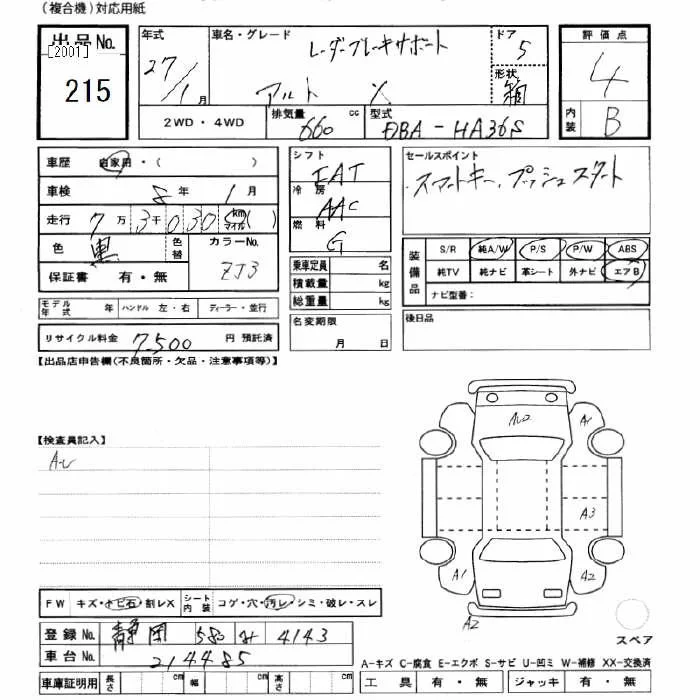 (複合機)対応用紙
出品No.
[2001]
215
年式
27/1月
車名・グレード
レーダーブレーキサポート
アルト X
ドア
5
形状
箱
評価点
4
内装
B
2WD・4WD
排気量
660 cc
型式
DBA-HA36S
車歴 自家用・( )
車検 8年 1月
走行 7万 3千 030 km マイル ( )
色 黒 色替
カラーNo.
ZJ3
保証書 有・無
シフト
FAT
冷房
AAC
燃料
G
セールスポイント
・スマートキー・プッシュスタート
乗車定員 名
積載量 kg
総重量 kg
装備品
S/R 純A/W P/S P/W ABS
純TV 純ナビ 革シート 外ナビ エアB
ナビ型番:
モデル年式 年 ハンドル 左・右 ディーラー・並行
名変期限
月 日
後日品
リサイクル料金 7500 円 預託済
【出品店申告欄(不良箇所・欠品・注意事項等)】
【検査員記入】
A1
A3
A1
A2
A2
FW キズ・トビ石・割レX
シート内装 コゲ・穴・汚レ・シミ・破レ・スレ
登録No. 静岡 580 4143
車台No. 214485
車庫証明用 長さ cm 幅 cm 高さ cm
スペア
A-キズ C-腐食 E-エクボ S-サビ U-凹ミ W-補修 XX-交換済
工具 有・無 ジャッキ 有・無